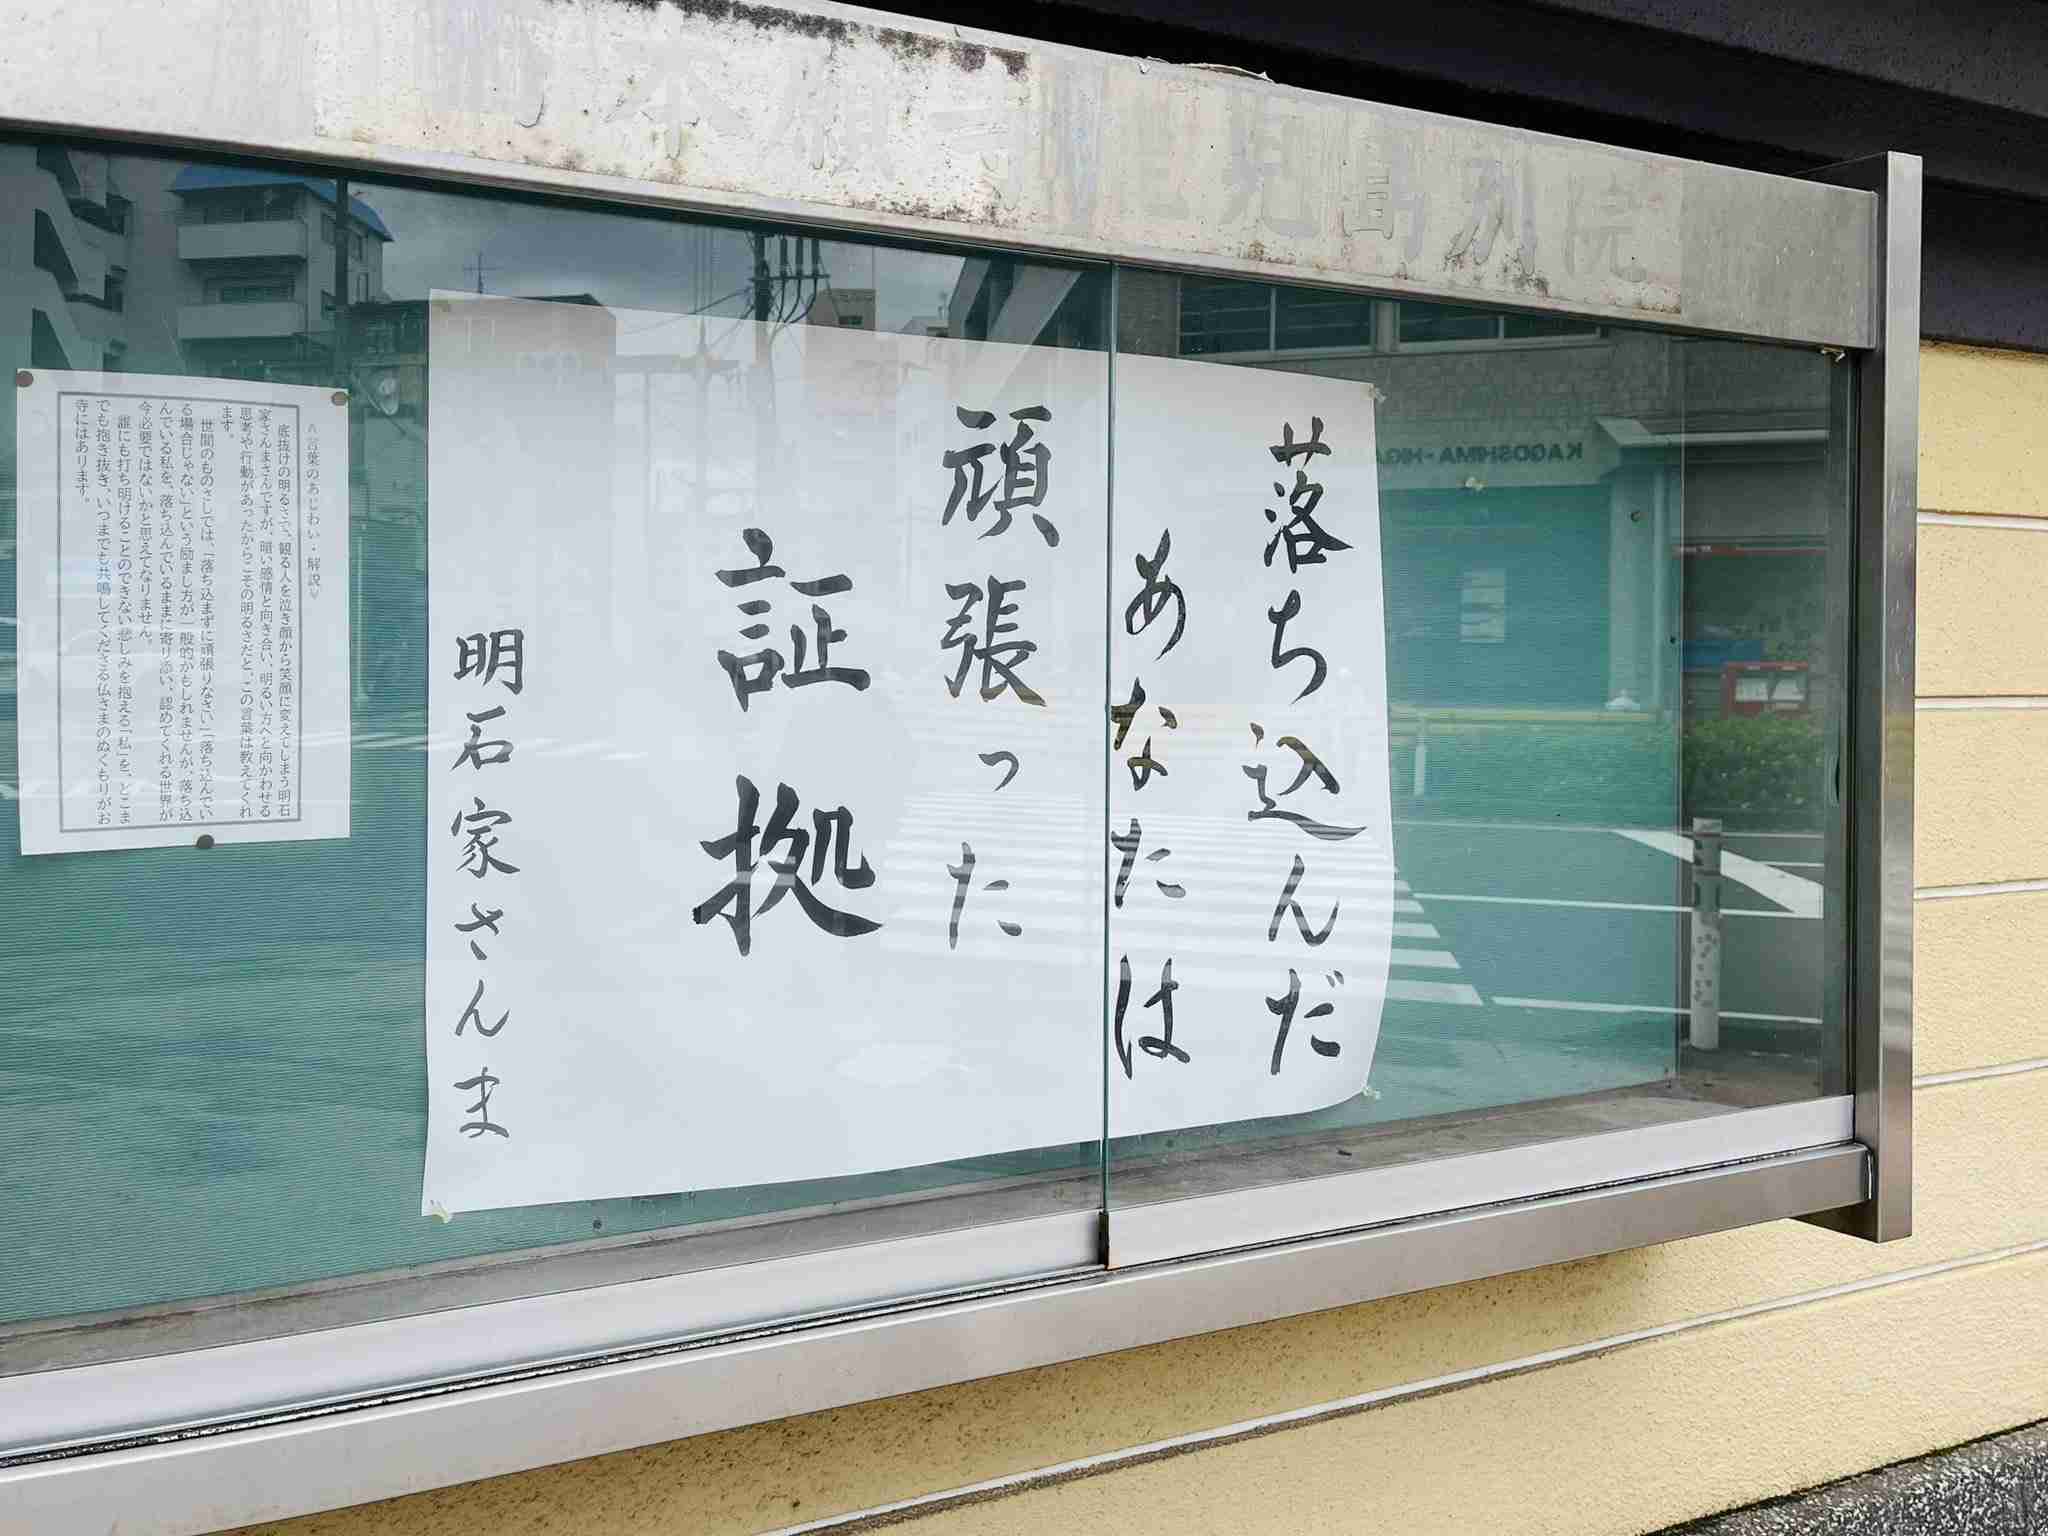 本願寺鹿児島別院
落ち込んだ
あなたは
頑張った
証拠
明石家さんま
《言葉のあじわい・解説》
底抜けの明るさで、観る人を泣き顔から笑顔に変えてしまう明石
家さんまさんですが、暗い感情と向き合い、明るい方へと向かわせる
思考や行動があったからこその明るさだと、この言葉は教えてくれ
ます。
世間のものさしでは、「落ち込まずに頑張りなさい」「落ち込んでい
る場合じゃない」という励まし方が一般的かもしれませんが、落ち込
んでいる私を、落ち込んでいるままに寄り添い、認めてくれる世界が
今必要ではないかと思えてなりません。
誰にも打ち明けることのできない悲しみを抱える「私」を、どこま
でも抱き抜き、いつまでも共鳴してくださる仏さまのぬくもりがお
寺にはあります。